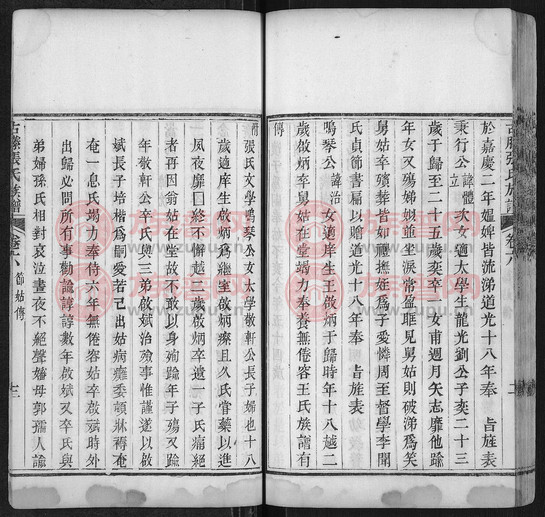 古滕張氏族譜 卷六
於嘉慶二年媼婢皆流涕道光十八年奉 旨旌表
秉行公諱體立次女適太學生龍光劉公子奕二十三
歲于歸至二十五歲奕卒一女甫週月矢志靡他踰
年女又殤娣姒並坐淚常盈眶見舅姑則破涕爲笑
舅姑卒殯葬皆如禮撫姪爲子愛憐周至督學李聞
氏貞節書扁以贈道光十八年奉 旨旌表
鳴琴公諱治女適庠生王啟炳于歸時年十八越二
歲啟炳卒舅姑在堂竭力奉養無倦容王氏族譜有
傳
附
張氏文學鳴琴公女太學敬軒公長子婦也十八
歲適庠生啟炳爲繼室啟炳瘵且久氏嘗藥以進
夙夜靡□終不懈越二歲啟炳卒遺一子氏痛絕
者再因翁姑在堂故不敢以身殉踰年子殤又踰
年敬軒公卒氏與三弟啟斌治殮事惟謹遂以啟
斌長子培楷爲嗣愛若己出姑病癱委頓牀褥奄
奄一息氏竭力奉侍六年無倦容姑卒啟斌時外
出歸必問所有事勸諭諄諄數年啟斌又卒氏與
弟婦孫氏相對哀泣晝夜不絕聲嬸母郭孺人諭
古滕張氏族譜 卷六 節姑傳 十三